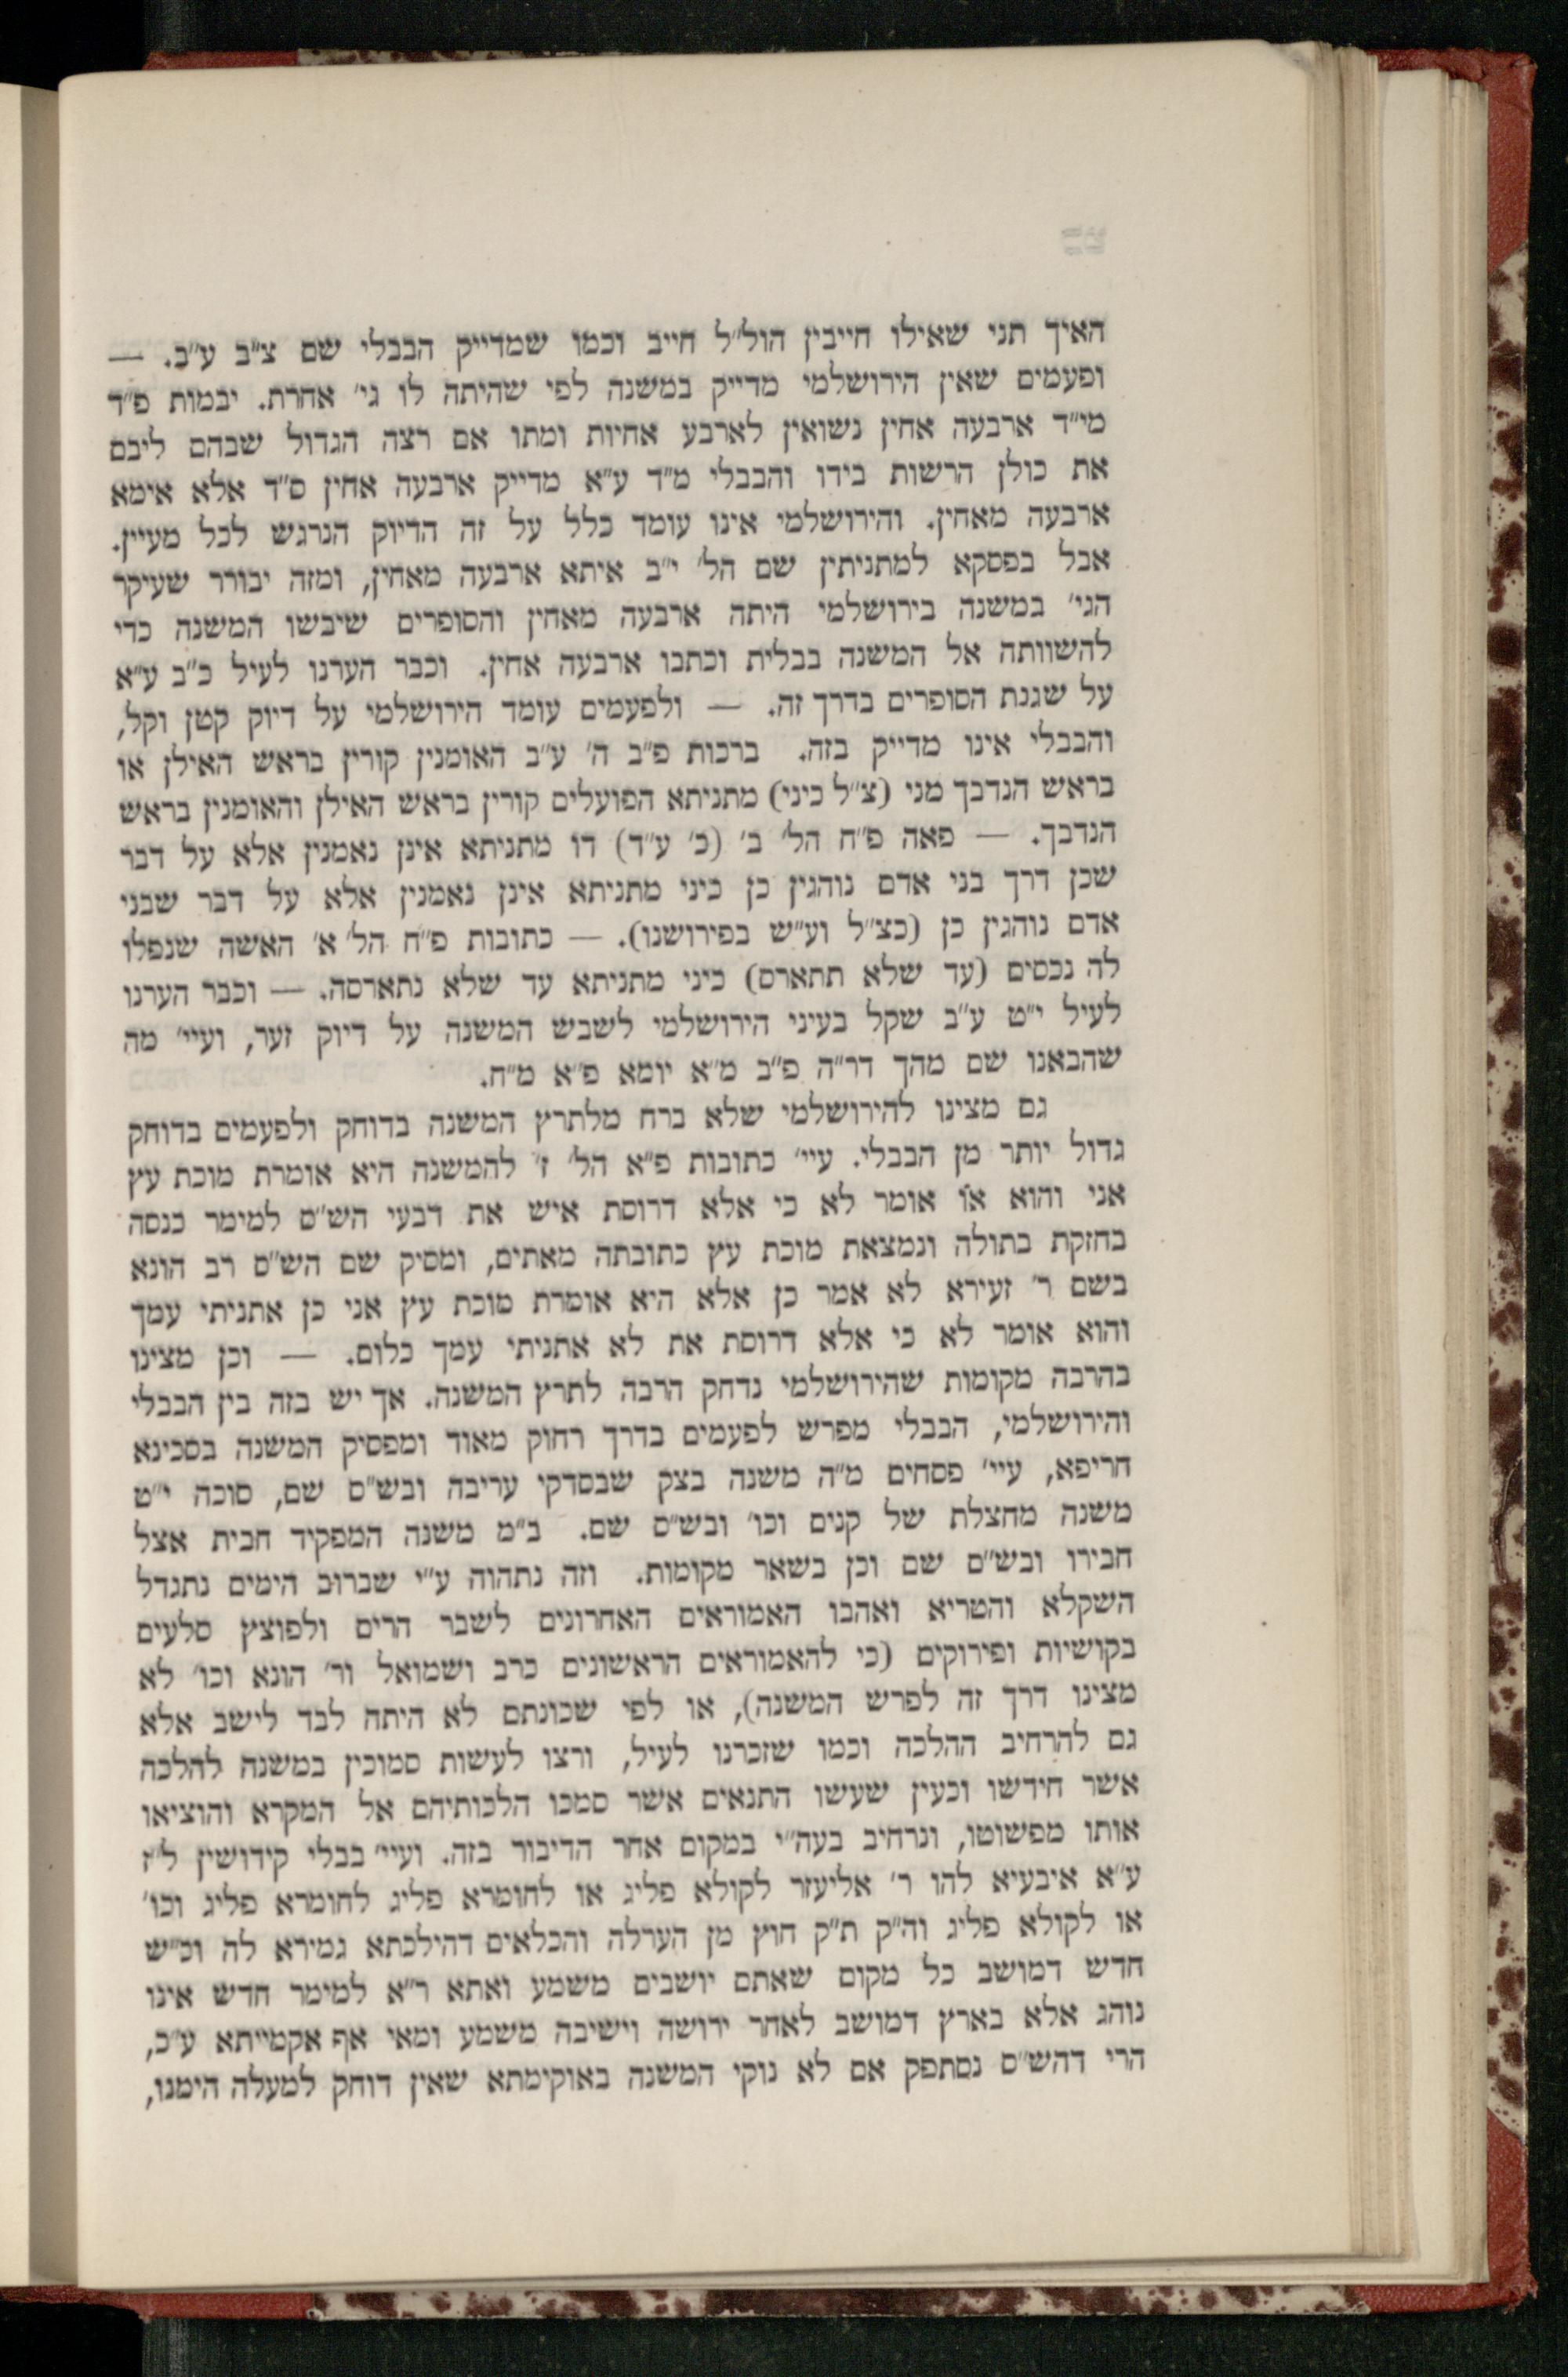 האיך תני שאילו חייבין הול״ל חייב וכמו שמדייק הבבלי שם צ״ב ע״ב. —
ופעמים שאין הירושלמי מדייק במשנה לפי שהיתה לו גי׳ אחרת. יבמות פ״ד
מי״ד ארבעה אחין נשואין לארבע אחיות ומתו אם רצה הגדול שבהם ליבם
את כולן הרשות בידו והבבלי מ״ד ע״א מדייק ארבעה אחין ס״ד אלא אימא
ארבעה מאחין. והירושלמי אינו עומד כלל על זה הדיוק הנרגש לכל מעיין.
אבל בפסקא למתניתין שם הל׳ י״ב איתא ארבעה מאחין, ומזה יבורר שעיקר
הגי׳ במשנה בירושלמי היתה ארבעה מאחין והסופרים שיבשו המשנה כדי
להשוותה אל המשנה בבלית וכתבו ארבעה אחין. וכבר הערנו לעיל כ״ב ע״א
על שגגת הסופרים בדרך זה. — ולפעמים עומד הירושלמי על דיוק קטן וקל,
והבבלי אינו מדייק בזה. ברכות פ״ב ה׳ ע״ב האומנין קורין בראש האילן או
בראש הנדבך מני (צ״ל כיני) מתניתא הפועלים קורין בראש האילן והאומנין בראש
הנדבך. — פאה פ״ח הל׳ ב׳ (כ׳ ע״ד) דו מתניתא אינן נאמנין אלא על דבר
שכן דרך בני אדם נוהגין כן כיני מתניתא אינן נאמנין אלא על דבר שבני
אדם נוהגין כן (כצ״ל וע״ש בפירושנו). — כתובות פ״ח הל׳ א׳ האשה שנפלו
לה נכסים (עד שלא תתארס) כיני מתניתא עד שלא נתארסה. — וכבר הערנו
לעיל י״ט ע״ב שקל בעיני הירושלמי לשבש המשנה על דיוק זער, ועיי׳ מה
שהבאנו שם מהך דר״ה פ״ב מ״א יומא פ״א מ״ח.
גם מצינו להירושלמי שלא ברח מלתרץ המשנה בדוחק ולפעמים בדוחק
גדול יותר מן הבבלי. עיי׳ כתובות פ״א הל׳ ז׳ להמשנה היא אומרת מוכת עץ
אני והוא או אומר לא כי אלא דרוסת איש את דבעי הש״ס למימר כנסה
בחזקת בתולה ונמצאת מוכת עץ כתובתה מאתים, ומסיק שם הש״ס רב הונא
בשם ר׳ זעירא לא אמר כן אלא היא אומרת מוכת עץ אני כן אתניתי עמך
והוא אומר לא כי אלא דרוסת את לא אתניתי עמך כלום. — וכן מצינו
בהרבה מקומות שהירושלמי נדחק הרבה לתרץ המשנה. אך יש בזה בין הבבלי
והירושלמי, הבבלי מפרש לפעמים בדרך רחוק מאוד ומפסיק המשנה בסכינא
חריפא, עיי׳ פסחים מ״ה משנה בצק שבסדקי עריבה ובש״ס שם, סוכה י״ט
משנה מחצלת של קנים וכו׳ ובש״ס שם. ב״מ משנה המפקיד חבית אצל
חבירו ובש״ס שם וכן בשאר מקומות. וזה נתהוה ע״י שברוב הימים נתגדל
השקלא והטריא ואהבו האמוראים האחרונים לשבר הרים ולפוצץ סלעים
בקושיות ופירוקים (כי להאמוראים הראשונים כרב ושמואל ור׳ הונא וכו׳ לא
מצינו דרך זה לפרש המשנה), או לפי שכונתם לא היתה לבד לישב אלא
גם להרחיב ההלכה וכמו שזכרנו לעיל, ורצו לעשות סמוכין במשנה להלכה
אשר חידשו וכעין שעשו התנאים אשר סמכו הלכותיהם אל המקרא והוציאו
אותו מפשוטו, ונרחיב בעה״י במקום אחר הדיבור בזה. ועיי׳ בבלי קידושין ל״ז
ע״א איבעיא להו ר׳ אליעזר לקולא פליג או לחומרא פליג לחומרא פליג וכו׳
או לקולא פליג וה״ק ת״ק חוץ מן הערלה והכלאים דהילכתא גמירא לה וכ״ש
חדש דמושב כל מקום שאתם יושבים משמע ואתא ר״א למימר חדש אינו
נוהג אלא בארץ דמושב לאחר ירושה וישיבה משמע ומאי אף אקמייתא ע״כ,
הרי דהש״ס נסתפק אם לא נוקי המשנה באוקימתא שאין דוחק למעלה הימנו,